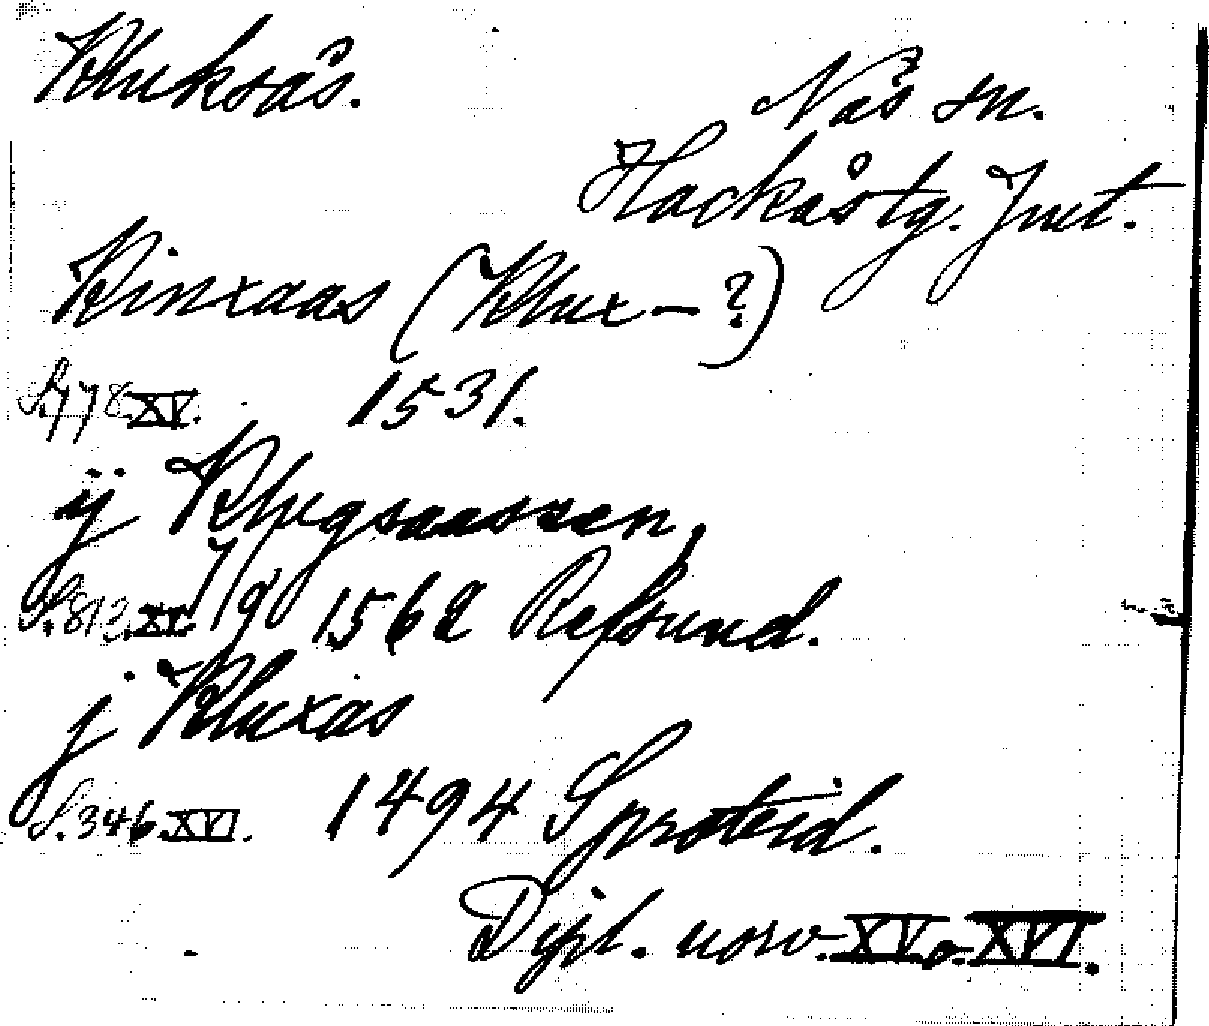 Kluksås.
Näs sn.
Hackås tg. Jmt.
Kinxaas (Klux-?)
S. 778 XV. 1531.
ij Klugsaassen,
S. 812. XV. 7/9 1562 Refsund.
j Kluxas
S. 346. XVI. 1494 Sproteid.
Dipl. norv. XV o. XVI.